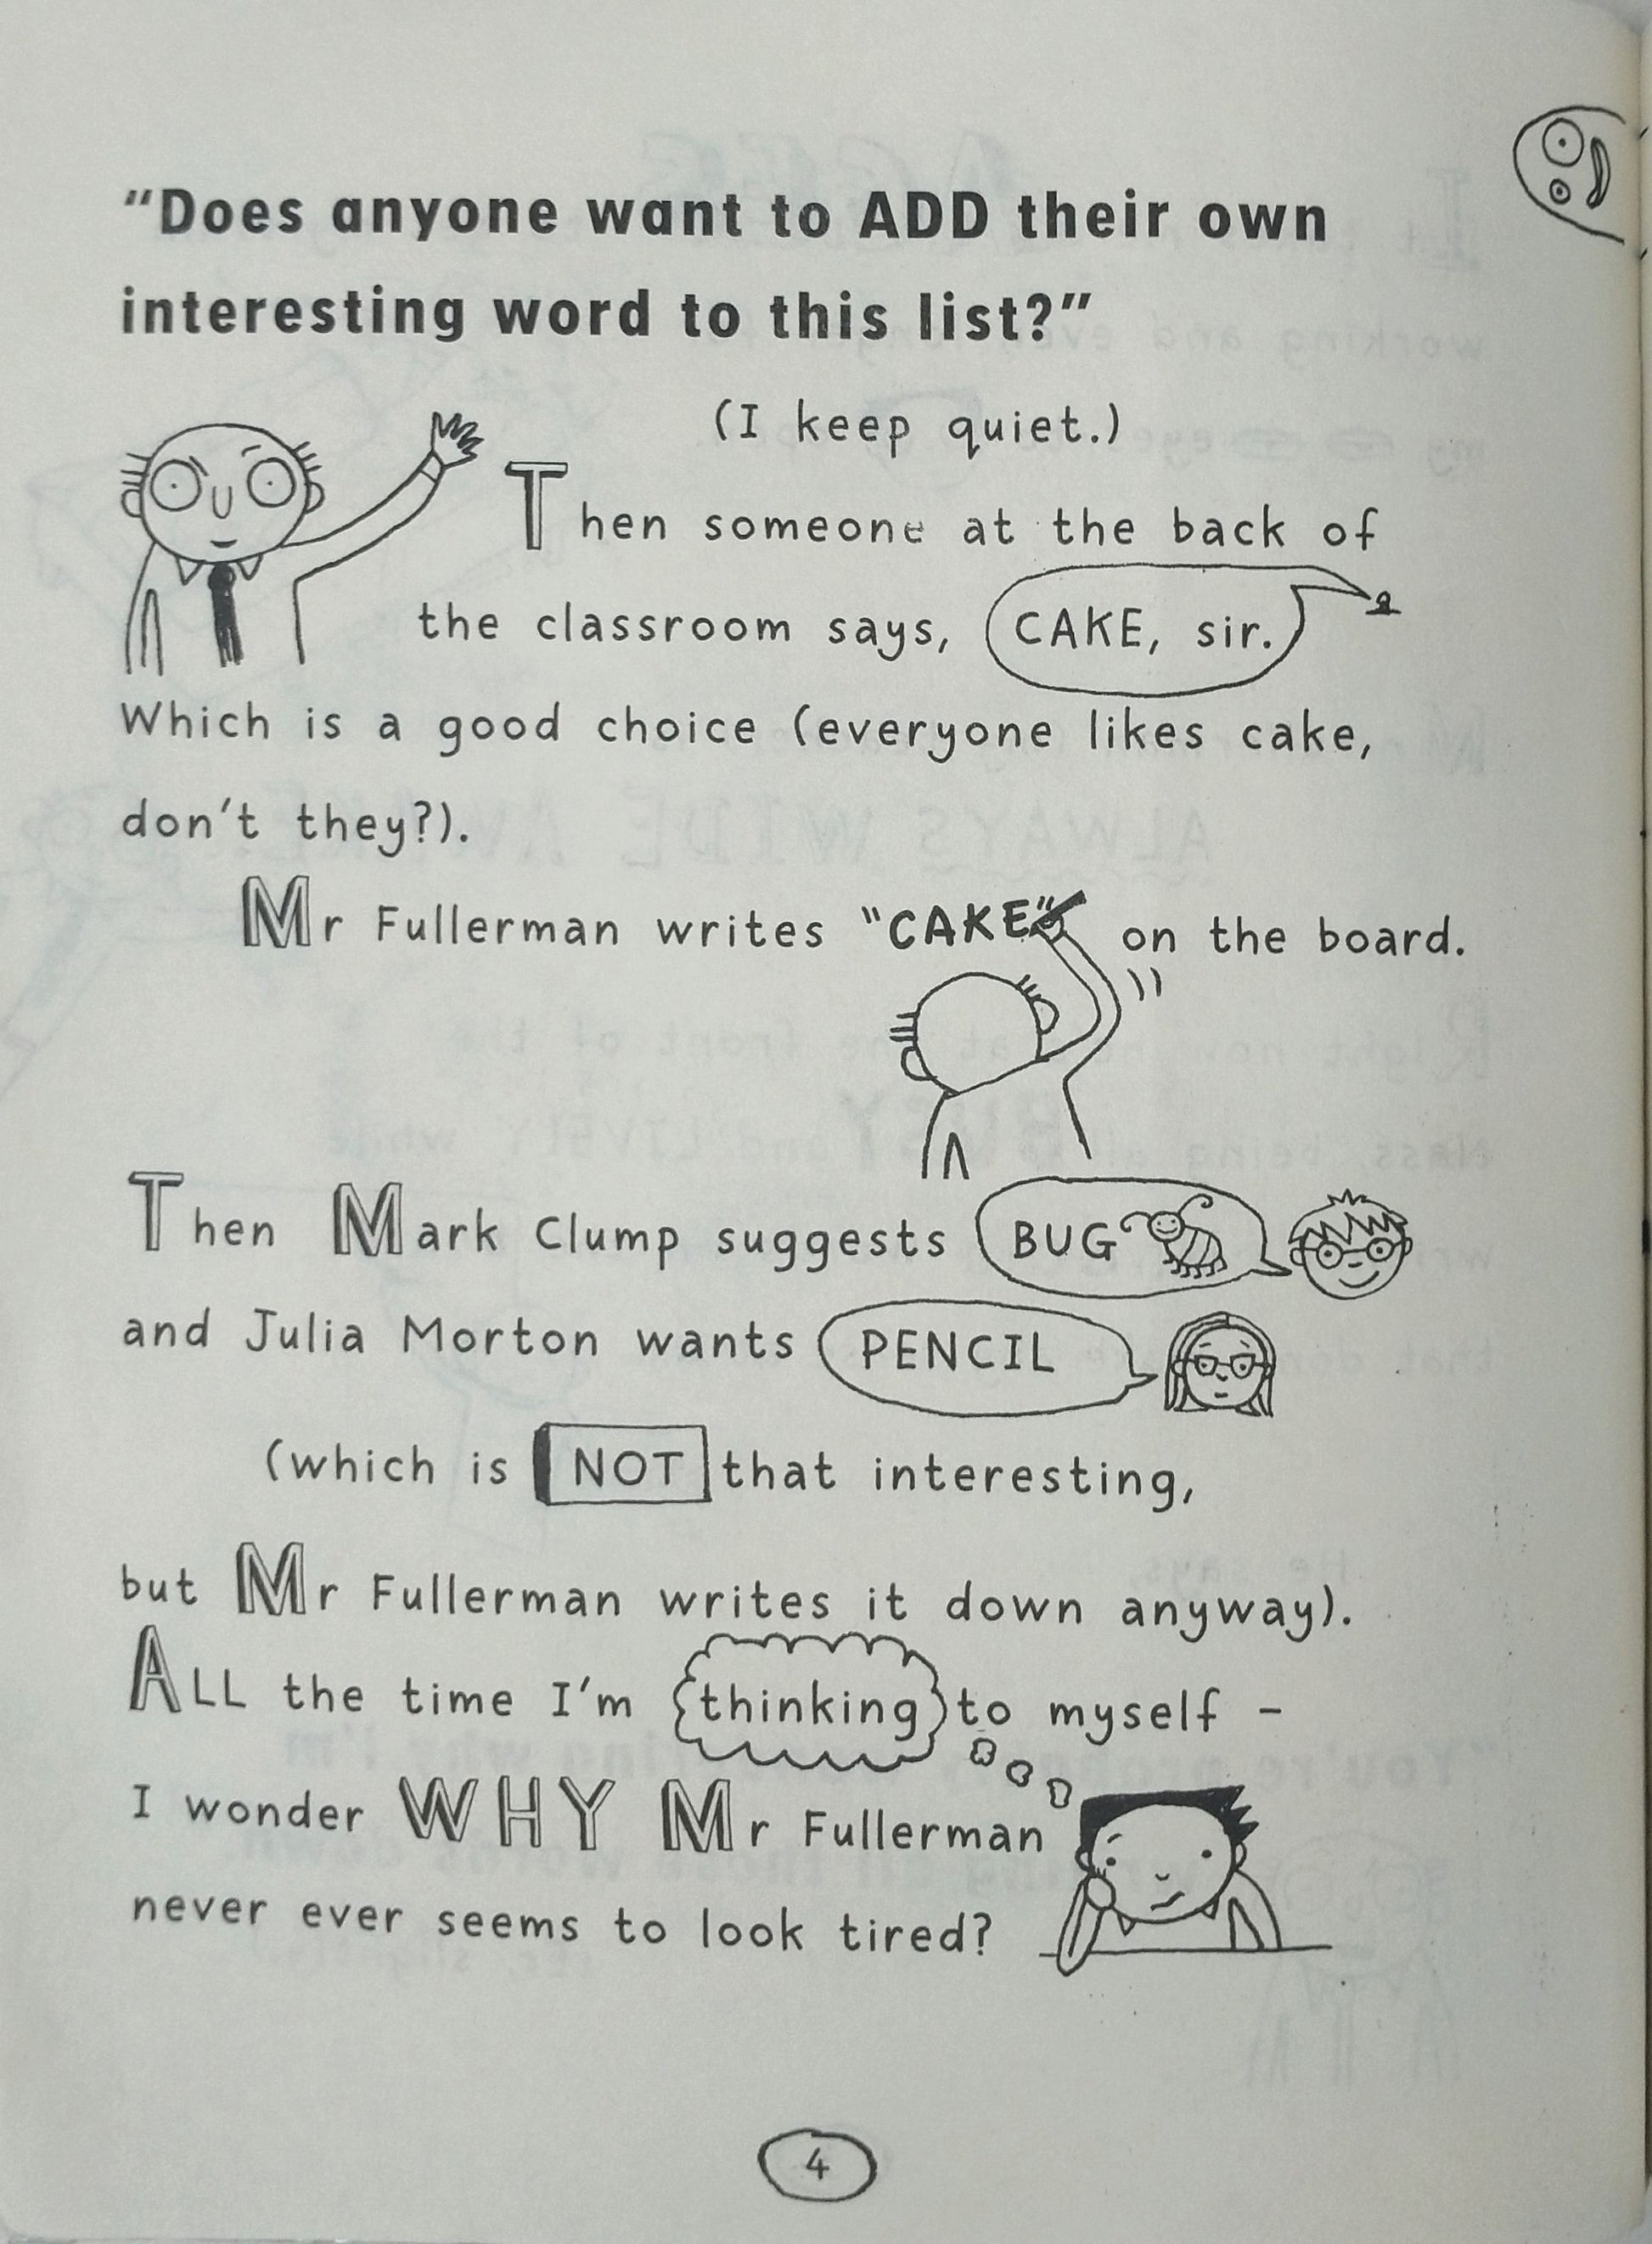 “Does anyone want to ADD their own
interesting word to this list?”
(I keep quiet.)
Then someone at the back of
the classroom says, CAKE, sir.
Which is a good choice (everyone likes cake,
don't they?).
Mr Fullerman writes "CAKE" on the board.
Then Mark Clump suggests BUG
and Julia Morton wants PENCIL
(which is NOT that interesting,
but Mr Fullerman writes it down anyway).
ALL the time I'm thinking to myself -
I wonder WHY Mr Fullerman
never ever seems to look tired?
4